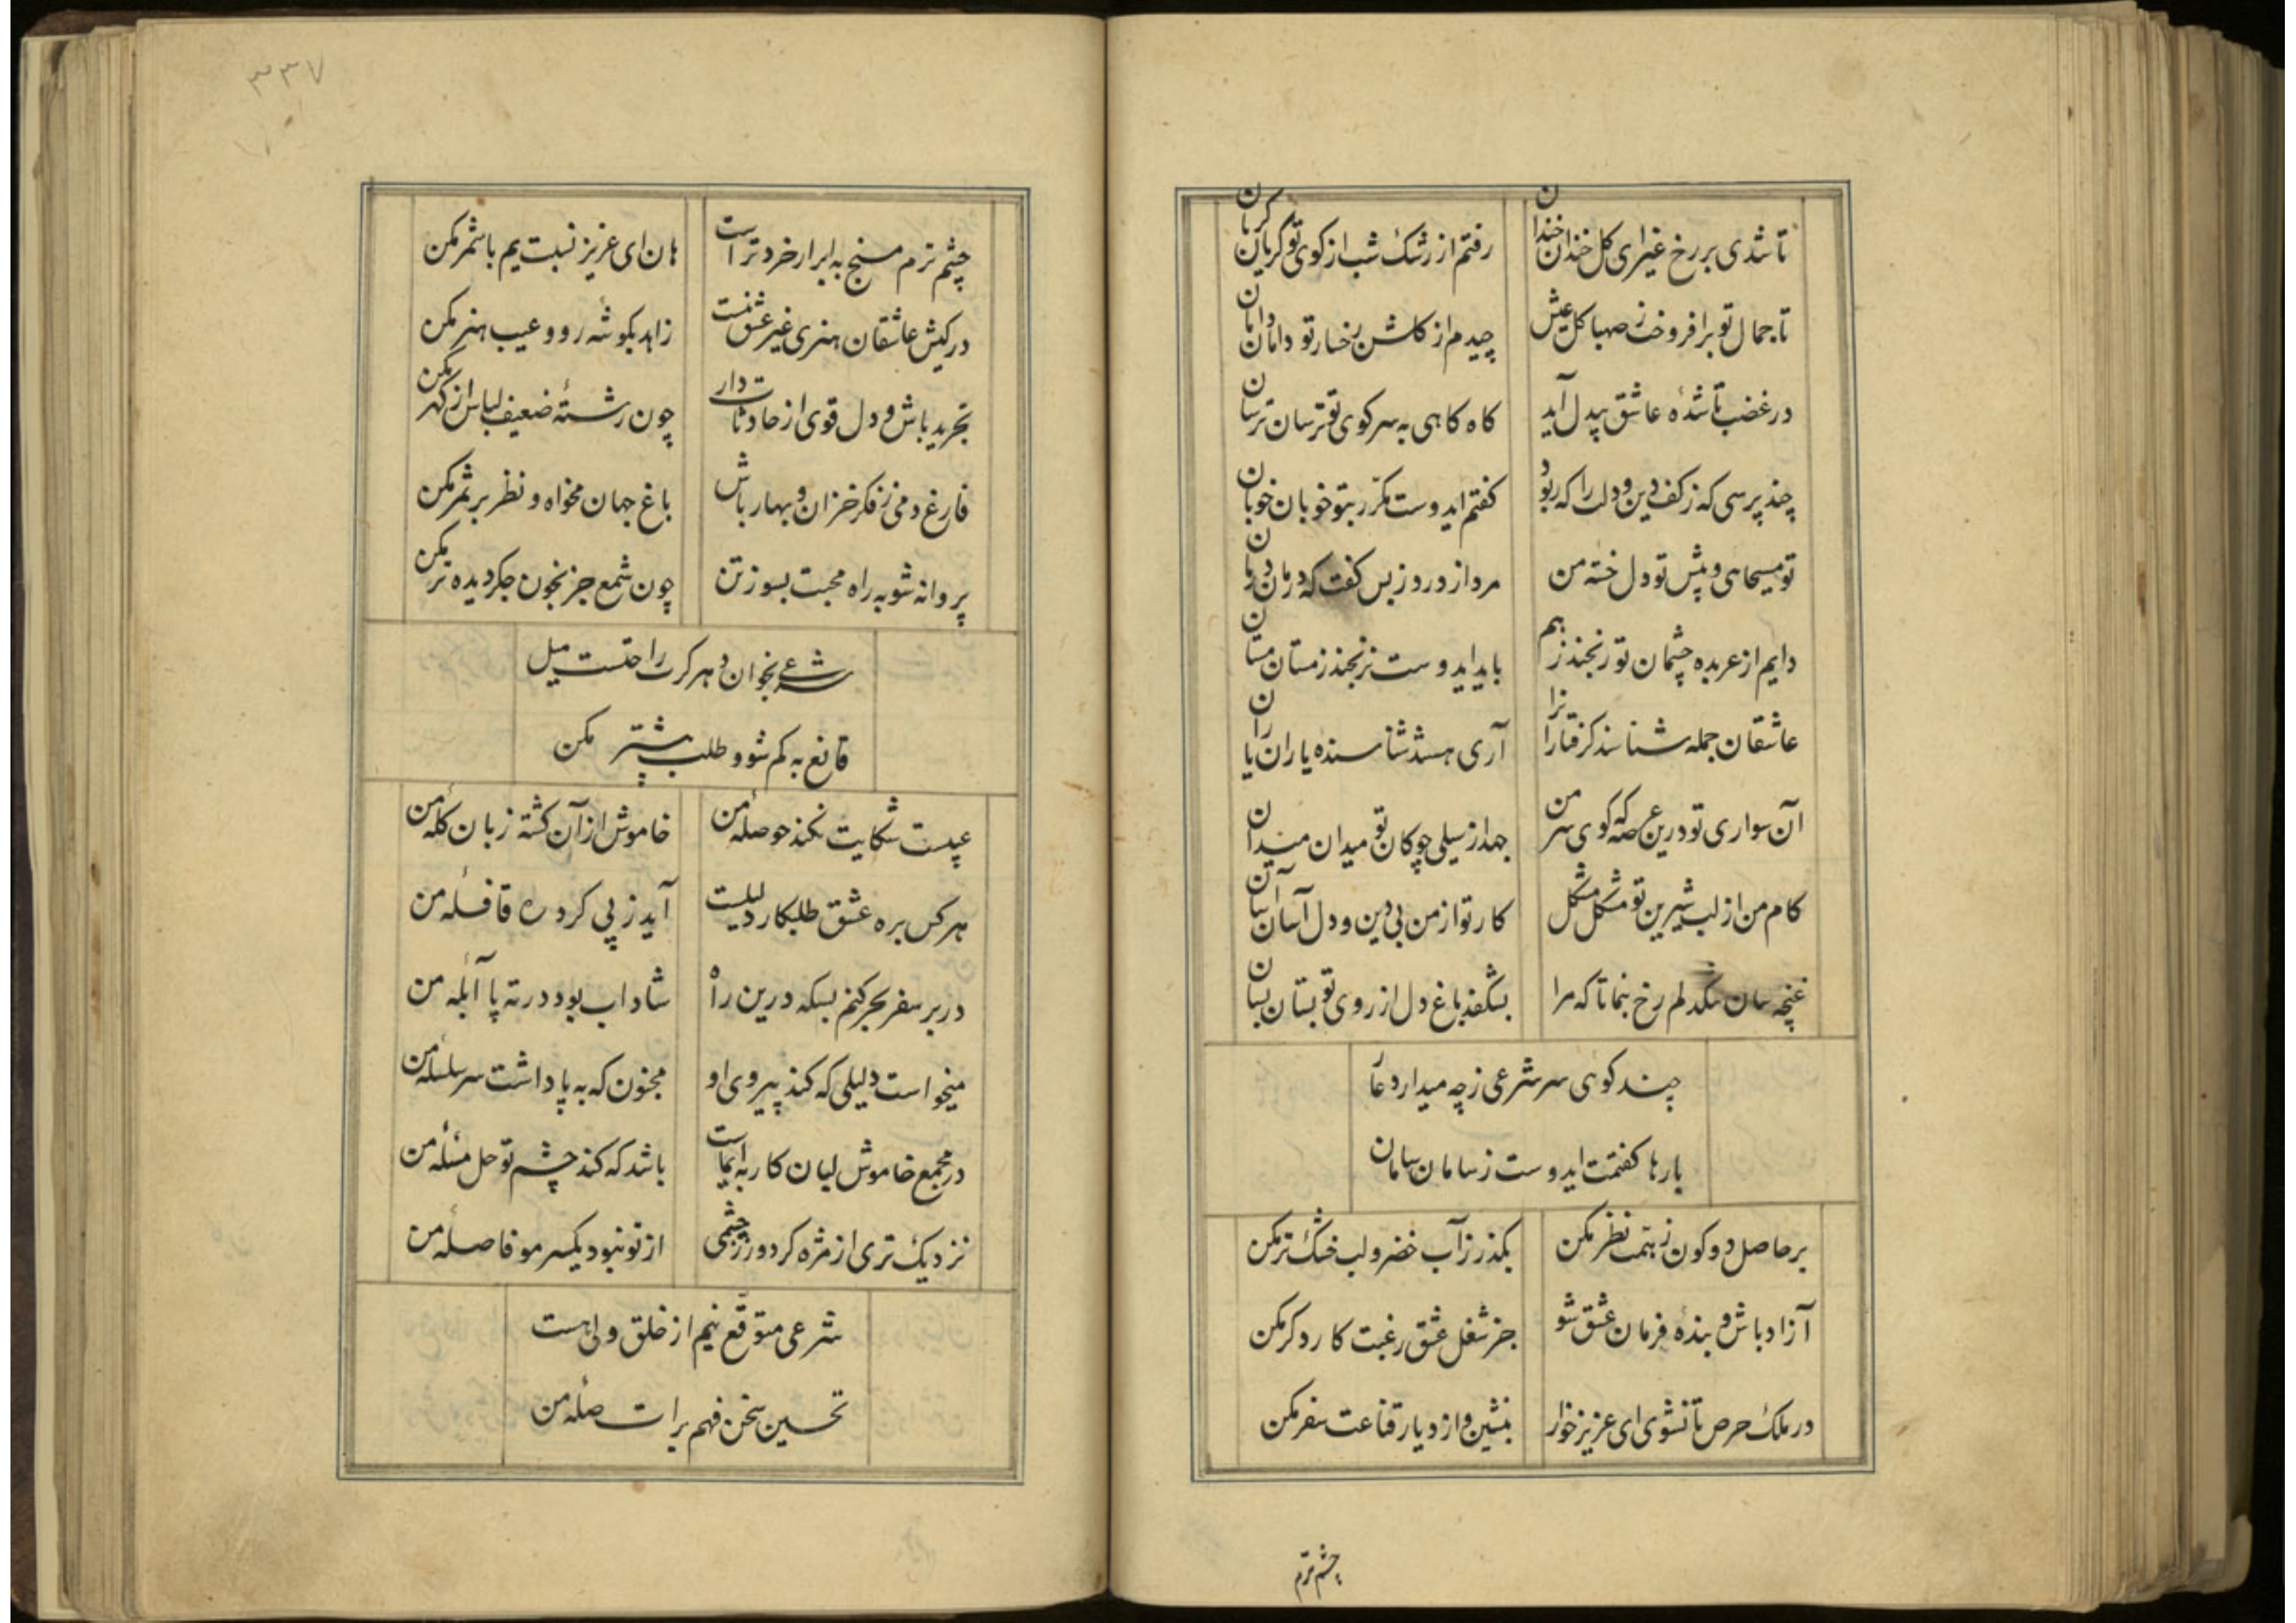 تا شدی بر رخ غیر ای کل خندان خندان
رفتم از رشک شب از کوی تو گریان گریان
تا جمال تو برافروخت ز صهبا کل عیش
چیدم از کلشن رخسار تو دامان دامان
در غضب تا شدهٔ عاشق بیدل آید
کاه کاهی به سر کوی تو ترسان ترسان
چند پرسی که ز کف دین و دلت را که ربود
کفتم ایدوست مکرّر بتو خوبان خوبان
تو مسیحایی و پیش تو دل خسته من
مرد از درد و ز بس کفت که درمان درمان
دایم از عربده چشمان تو رنجند ز هم
باید ایدوست نرنجند ز مستان مستان
عاشقان جمله شناسند کرفتارانرا
آری هستند شناسنده یاران یاران
آن سواری تو درین عرصه که کوی سر من
جهد از سیلی چوکان تو میدان میدان
کام من از لب شیرین تو مشکل مشکل
کار تو از من بی دین و دل آسان آسان
غنچه سان تنکدلم رخ بنما تا که مرا
بشکفد باغ دل از روی تو بستان بستان
چند کوئی سر شرعی ز چه میدارد عار
بارها کفتمت ایدوست ز سامان سامان
بر حاصل دو کون ز همت نظر مکن
بکذر ز آب خضر و لب خشک تر مکن
آزاد باش و بنده فرمان عشق شو
جز شغل عشق رغبت کار دکر مکن
در ملک حرص تا نشوی ای عزیز خوار
بنشین و از دیار قناعت سفر مکن
چشم ترم
۳۳۷
چشم ترم مسنج به ابر ار خرد تراست
هان ای عزیز نسبت یم با شمر مکن
در کیش عاشقان هنری غیر عشق نیست
زاهد بکوشه رو و عیب هنر مکن
تجرید باش و دل قوی از حادثات دار
چون رشتهٔ ضعیف لباس از کهر مکن
فارغ دمی ز فکر خزان و بهار باش
باغ جهان مخواه و نظر بر ثمر مکن
پروانه شو به راه محبت بسوز تن
چون شمع جز بخون جکر دیده تر مکن
شرعی بخوان و هر کرت راحتست میل
قانع به کم شو و طلب بیشتر مکن
عیبست شکایت نکند حوصلهٔ من
خاموش از آن کشته زبان کلهٔ من
هر کس بره عشق طلبکار دلیلست
آید ز پی کرد ره قافلهٔ من
در بر سفر بحر کنم بسکه درین راه
شاداب بود در ته پا آبلهٔ من
میخواست دلیلی که کند پیروی او
مجنون که به پا داشت سر سلسلهٔ من
در مجمع خاموش لبان کار به ایماست
باشد که کند چشم تو حل مسئلهٔ من
نزدیک تری از مژه کر دور ز چشمی
از تو نبود یکسر مو فاصلهٔ من
شرعی متوقّع نیم از خلق ولی هست
تحسین سخن فهم برات صلهٔ من